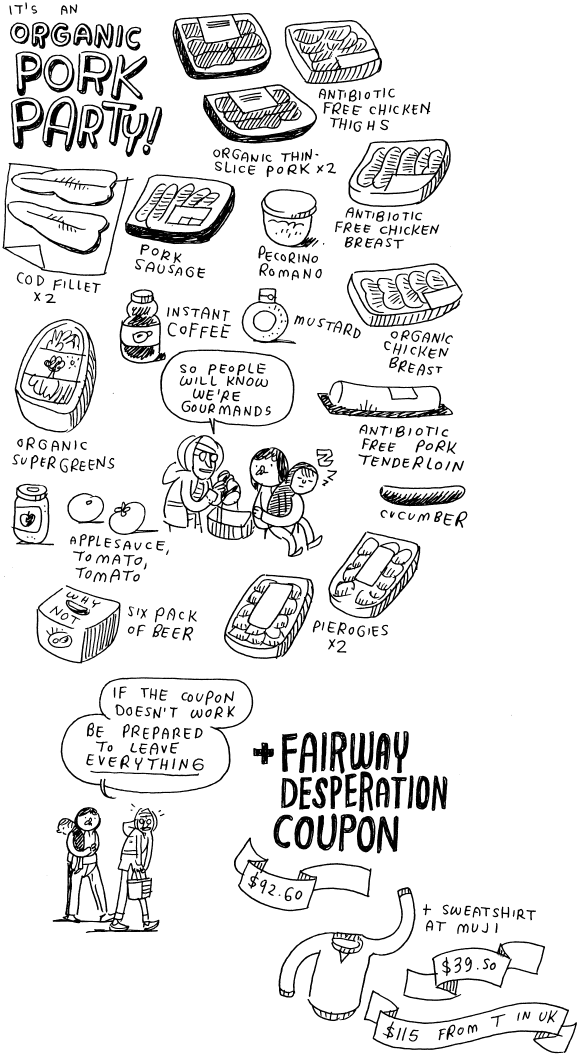 IT'S AN
ORGANIC
PORK
PARTY!
ANTIBIOTIC
FREE CHICKEN
THIGHS
ORGANIC THIN-
SLICE PORK x2
ANTIBIOTIC
FREE CHICKEN
BREAST
COD FILLET
x2
PORK
SAUSAGE
PECORINO
ROMANO
INSTANT
COFFEE
MUSTARD
ORGANIC
CHICKEN
BREAST
SO PEOPLE
WILL KNOW
WE'RE
GOURMANDS
ORGANIC
SUPERGREENS
ANTIBIOTIC
FREE PORK
TENDERLOIN
ZZZ
CUCUMBER
APPLESAUCE,
TOMATO,
TOMATO
WHY
NOT
SIX PACK
OF BEER
PIEROGIES
x2
IF THE COUPON
DOESN'T WORK
BE PREPARED
TO LEAVE
EVERYTHING
+ FAIRWAY
DESPERATION
COUPON
$92.60
+ SWEATSHIRT
AT MUJI
$39.50
$115 FROM T IN UK